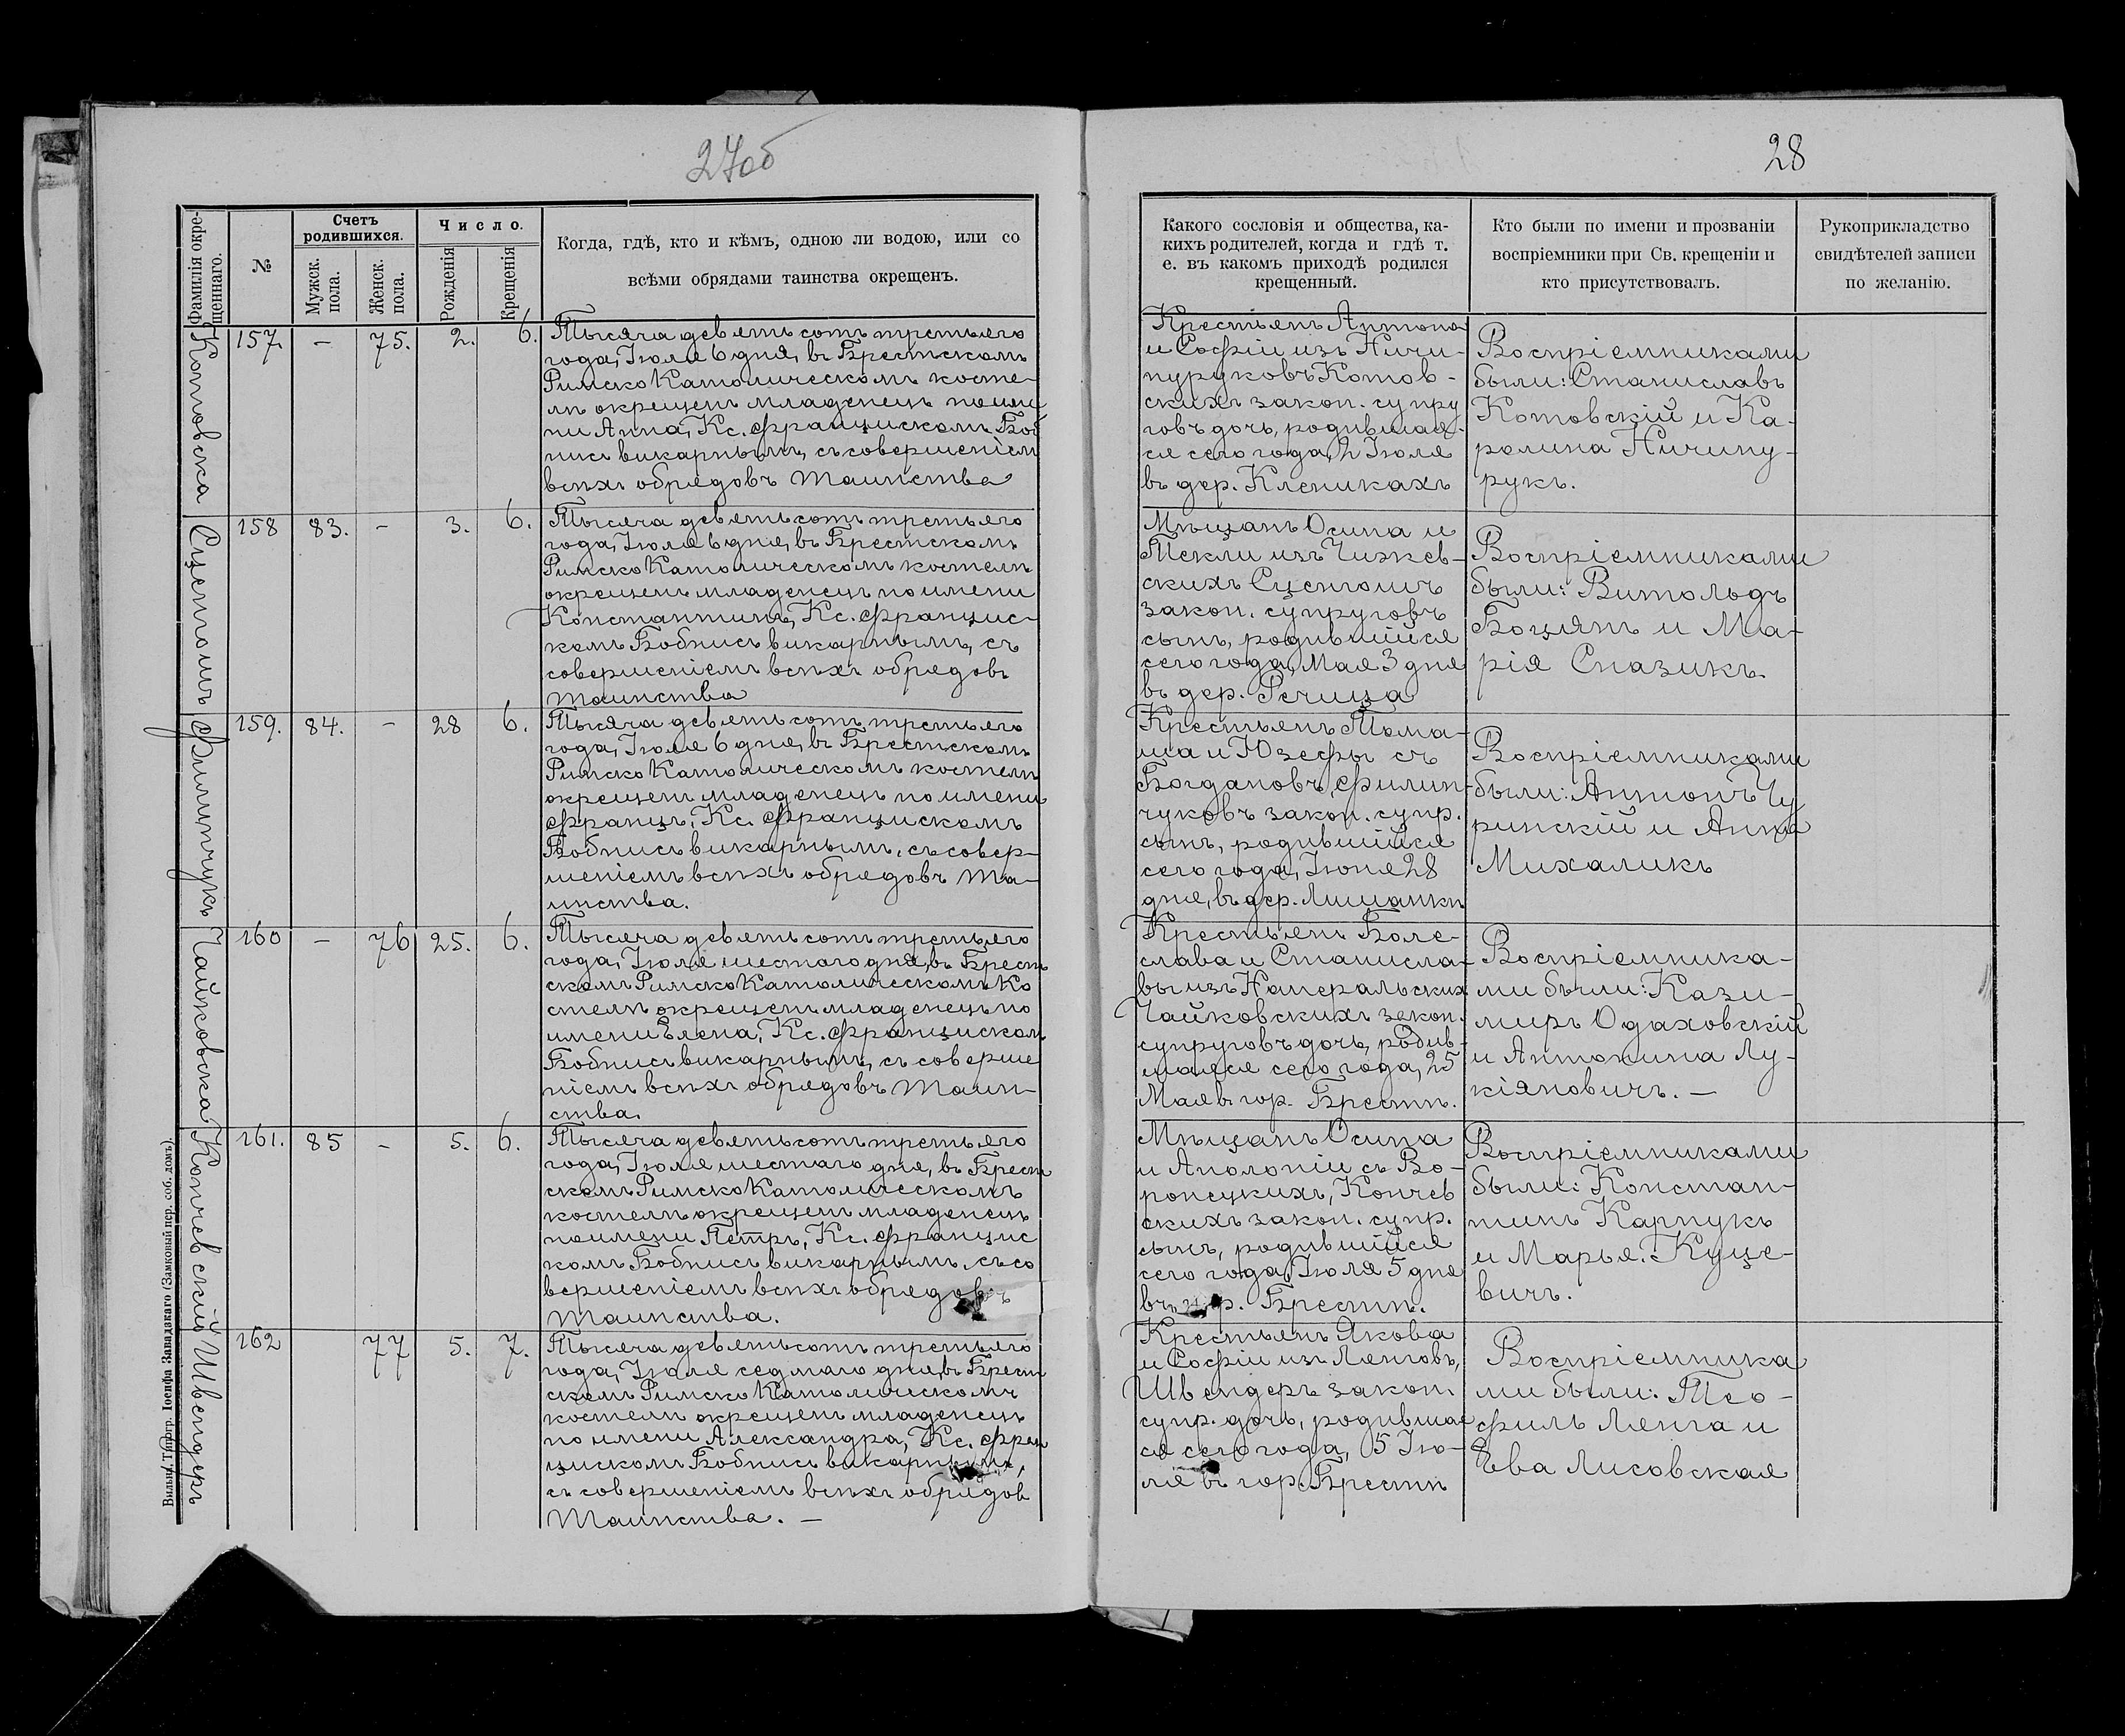 27об
28
Фамилія окре-
щеннаго.
№
Счетъ
родившихся.
Мужск.
пола.
Женск.
пола.
Число.
Рожденія
Крещенія
Когда, гдѣ, кто и кѣмъ, одною ли водою, или со
всѣми обрядами таинства окрещенъ.
Какого сословія и общества, ка-
кихъ родителей, когда и гдѣ т.
е. въ какомъ приходѣ родился
крещенный.
Кто были по имени и прозваніи
воспріемники при Св. крещеніи и
кто присутствовалъ.
Рукоприкладство
свидѣтелей записи
по желанію.
Котовска
157. – 75. 2. 6.
Тысяча девятьсотъ третьяго
года, Іюля 6 дня, въ Брестскомъ
РимскоКатолическомъ косте-
лѣ окрещенъ младенецъ по име
ни Анна, Кс. Францискомъ Боб
нисъ викарнымъ, съ совершеніем
всѣхъ обрядовъ Таинства
Крестьянъ Антона
и Софіи изъ Ничи-
пуруковъ Котов-
скихъ закон. супру
говъ дочь, родившая-
ся сего года, 2 Іюля
въ дер. Клейникахъ
Воспріемниками
были: Станиславъ
Котовскій и Ка-
ролина Ничипу-
рукъ.
Сцентомъ
158 83. – 3. 6.
Тысяча девятьсотъ третьяго
года, Іюля 6 дня, въ Брестскомъ
РимскоКатолическомъ костелѣ
окрещенъ младенецъ по имени
Константинъ, Кс. Францис-
комъ Бобнисъ викарнымъ, съ
совершеніемъ всѣхъ обрядовъ
таинства
Мѣщанъ Осипа и
Теклы изъ Чижев-
скихъ
закон. супруговъ
сынъ, родившійся
сего года, Мая 3 дня
въ дер. Речица
Воспріемниками
были: Витольдъ
Боцянъ и Ма-
рія Сназикъ.
Филипчукъ
159. 84. – 28 6.
Тысяча девятьсотъ третьяго
года, Іюля 6 дня, въ Брестскомъ
РимскоКатолическомъ костелѣ
окрещенъ младенецъ по имени
Францъ, Кс. Францискомъ
Бобнисъ викарнымъ, съ совер-
шеніемъ всѣхъ обрядовъ та-
инства.
Крестьянъ Тома-
ша и Юзефы съ
Богдановъ, Филип-
чуковъ закон. супр.
сынъ, родившійся
сего года, Іюня 28
дня, въ дер.
Воспріемниками
были: Антонъ Чу
ринскій и Анна
Михаликъ
Чайковска
160 – 76 25. 6.
Тысяча девятьсотъ третьяго
года, Іюля шестого дня, въ Брест
скомъ РимскоКатолическомъ Ко
стелѣ окрещенъ младенецъ по
имени Елена, Кс. Францискомъ
Бобнисъ викарнымъ, съ соверше
ніемъ всѣхъ обрядовъ Таин-
ства.
Крестьянъ Боле-
слава и Станисла-
вы изъ Наперальских
Чайковскихъ закон.
супруговъ дочь, родив-
шаяся сего года, 25
Мая въ гор. Брестѣ.
Воспріемника-
ми были: Кази-
миръ Одаховскій
и Антонина Лу-
кіяновичъ. –
Кончевскій
161. 85 – 5. 6.
Тысяча девятьсотъ третьяго
года, Іюля шестаго дня, въ Брест
скомъ РимскоКатолическомъ
костелѣ окрещенъ младенецъ
по имени Петръ, Кс. Францис
комъ Бобнисъ викарнымъ, съ со
вершеніемъ всѣхъ обрядовъ
Таинства.
Мѣщанъ Осипа
и Аполоніи съ Во-
ронецкихъ, Кончев
скихъ закон. супр.
сынъ, родившійся
сего года, Іюля 5 дня
въ гор. Брестѣ.
Воспріемниками
были: Констан-
тинъ Карпукъ
и Марья Куце-
вичъ.
Швендеръ
162 77 5. 7.
Тысяча девятьсотъ третьяго
года, Іюля седмаго дня, въ Брест
скомъ РимскоКатолическомъ
костелѣ окрещенъ младенецъ
по имени Александра, Кс. Фран
цискомъ Бобнисъ викарнымъ,
съ совершеніемъ всѣхъ обрядов
Таинства. –
Крестьянъ Якова
и Софіи изъ Ленговъ,
Швендеръ закон.
супр. дочь, родившая
ся сего года, 5 Ію-
ля въ гор. Брестѣ
Воспріемника
ми были: Тео-
филь Ленга и
Ева Лисовская
Вильна, Типогр. Іосифа Завадзкаго (Замковый пер. соб. домъ).